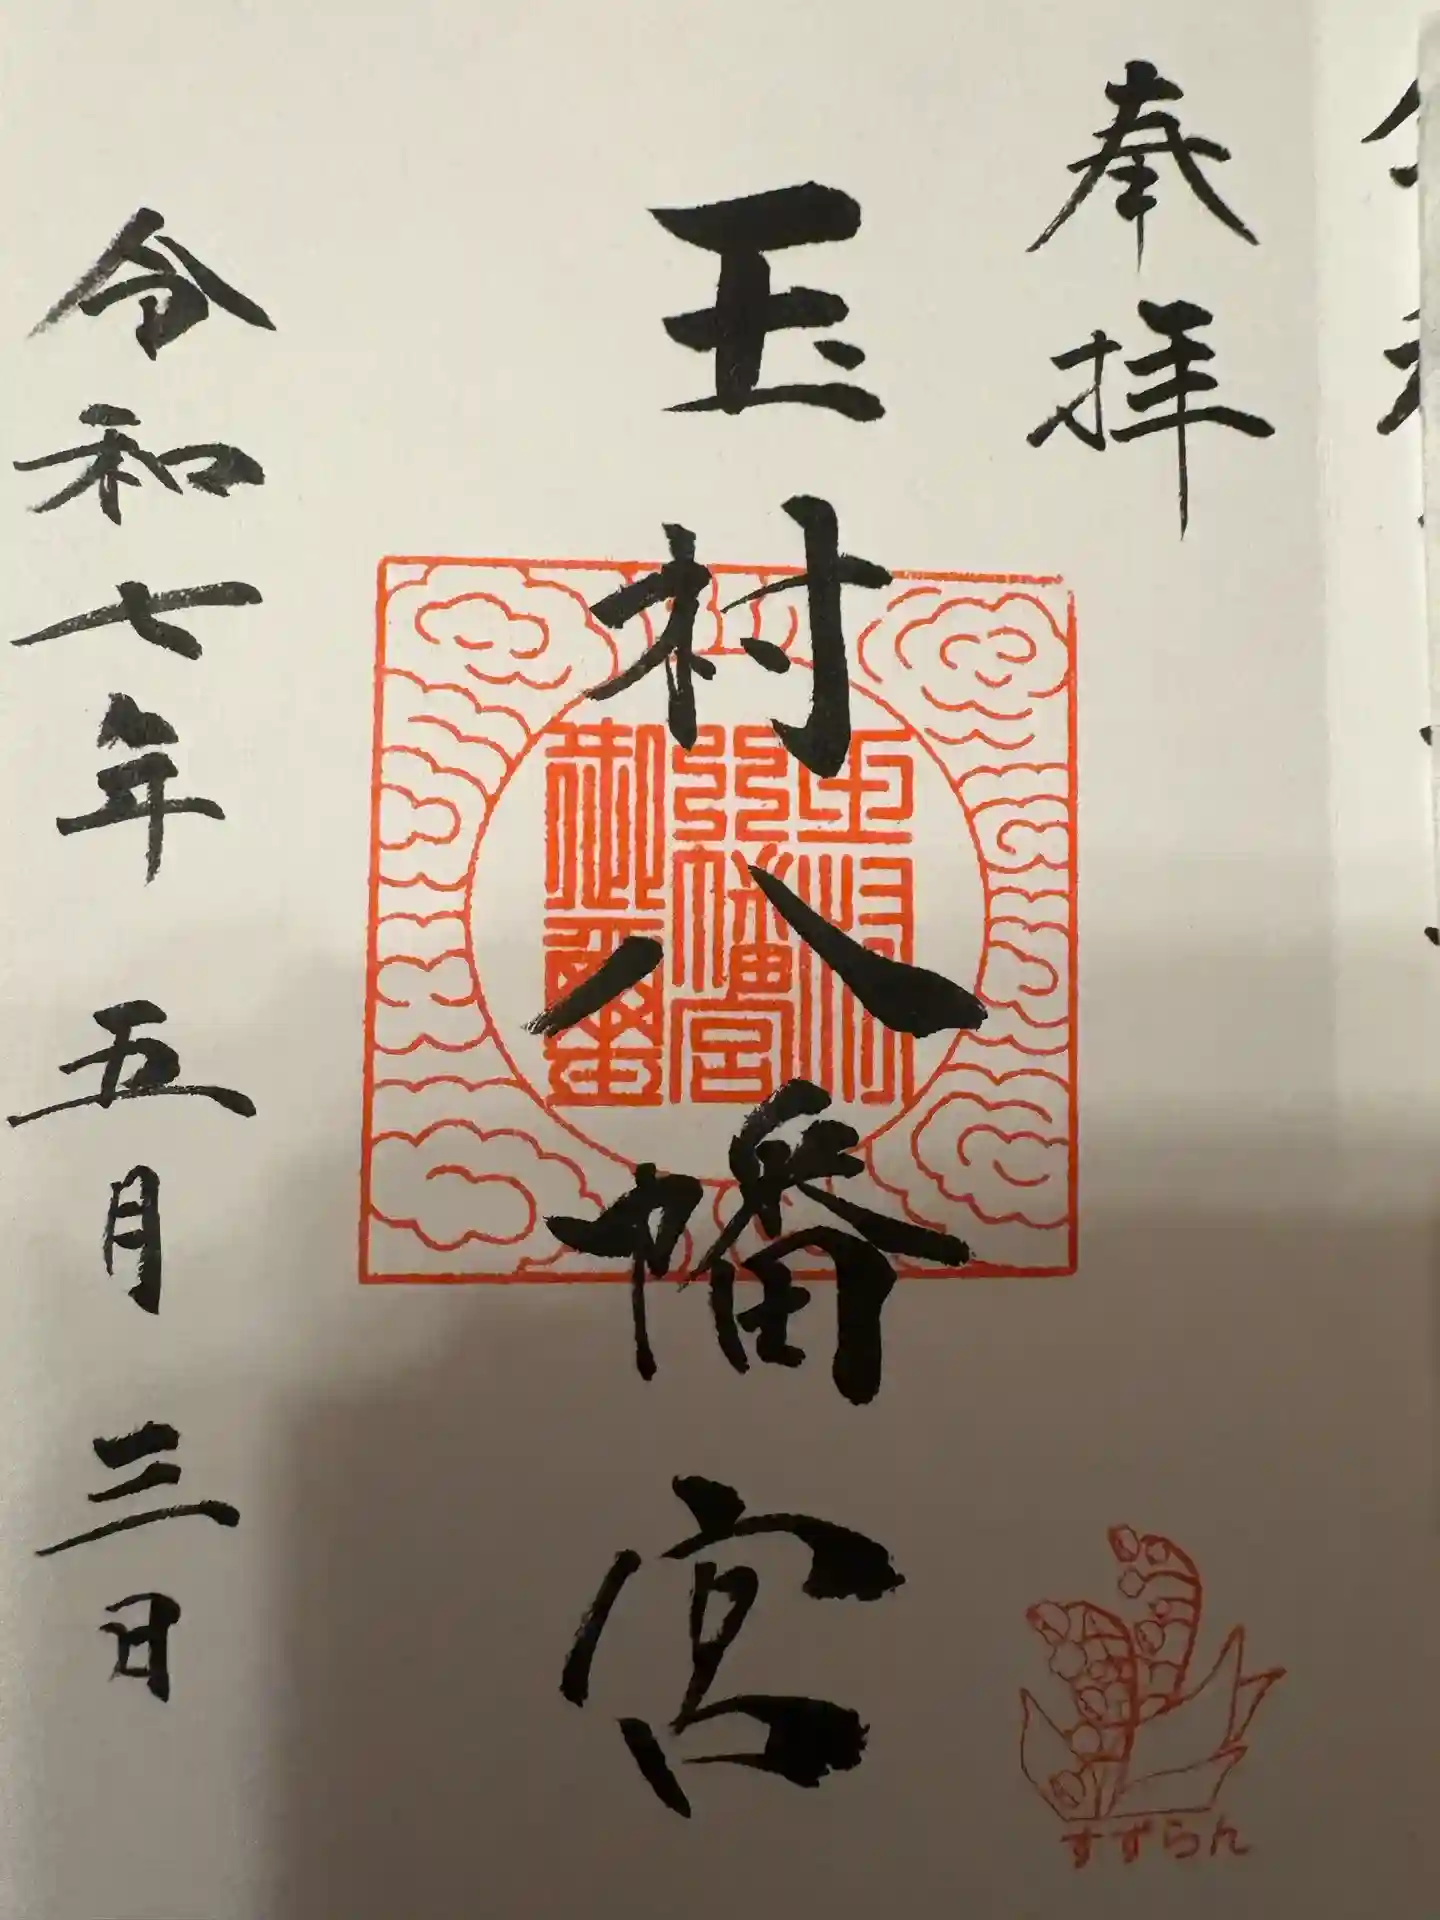 奉拝
玉村八幡宮
玉村
八幡宮
御璽
令和七年 五月 三日
すずらん